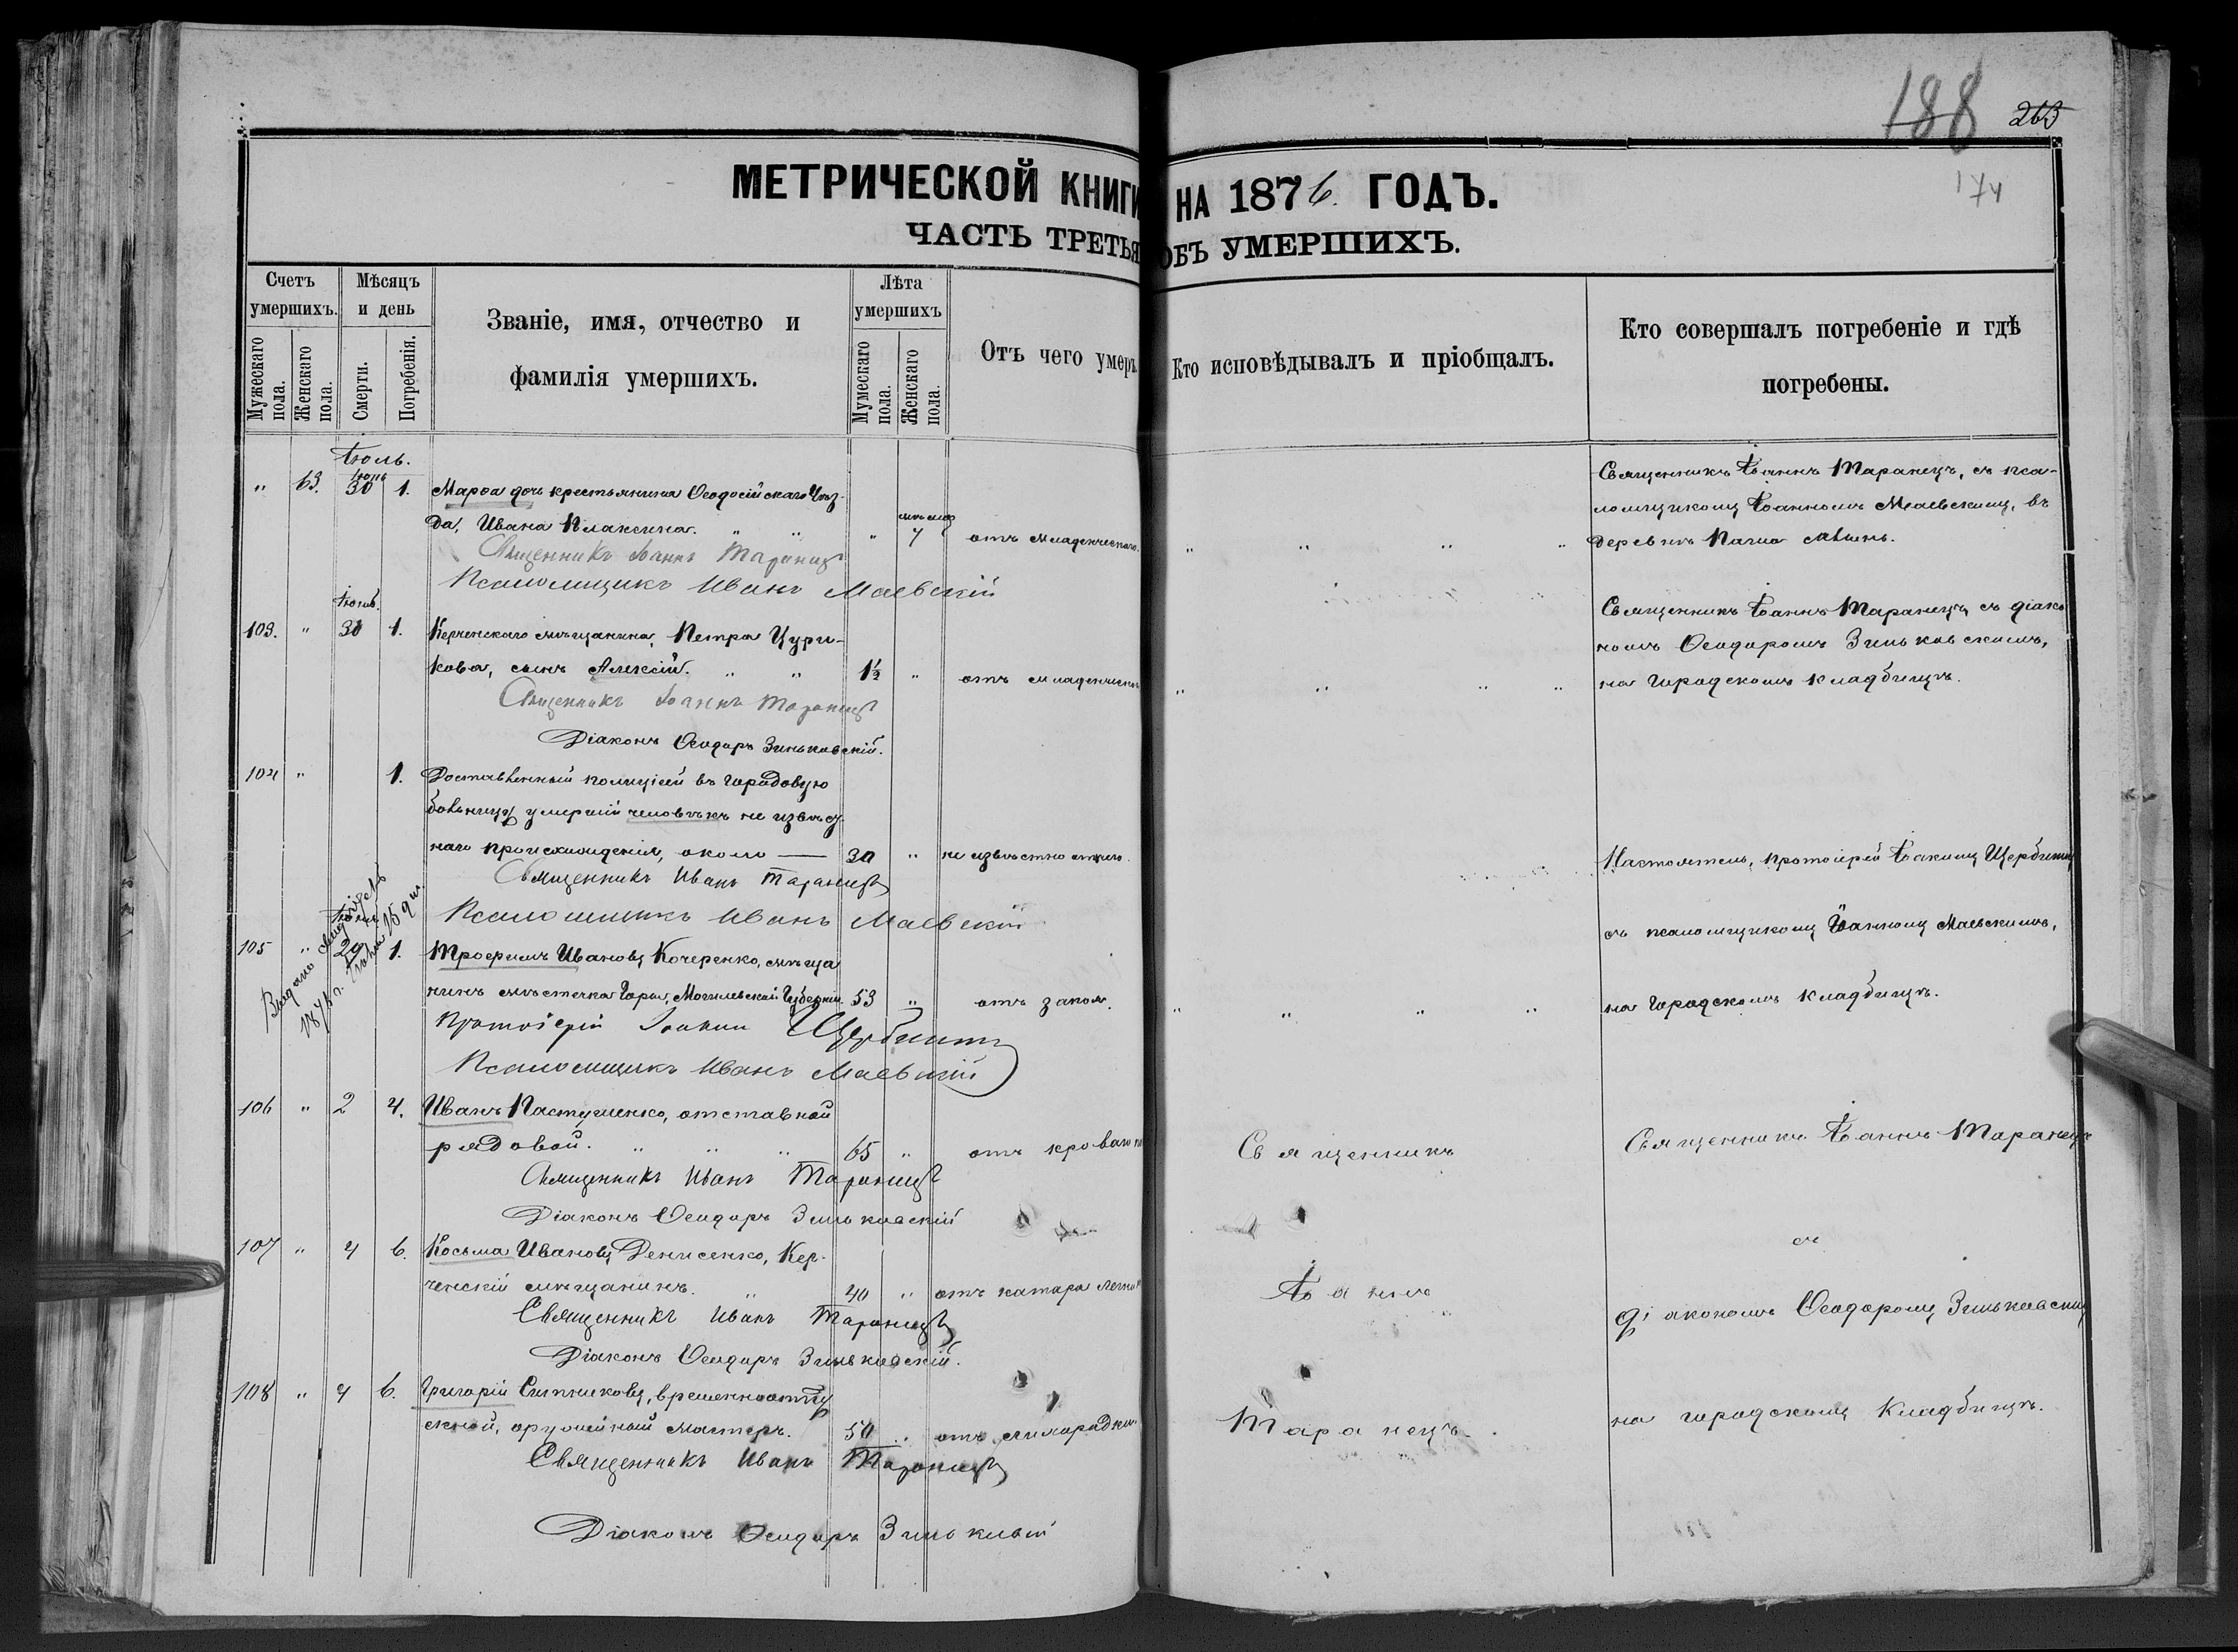 188 263
174
МЕТРИЧЕСКОЙ КНИГИ НА 1876. ГОДЪ.
ЧАСТЬ ТРЕТЬЯ ОБЪ УМЕРШИХЪ.
Счетъ умершихъ.
Мужескаго пола.
Женскаго пола.
Мѣсяцъ и день
Смерти.
Погребенія.
Званіе, имя, отчество и
фамилія умершихъ.
Лѣта умершихъ
Мужескаго пола.
Женскаго пола.
Отъ чего умеръ
Кто исповѣдывалъ и пріобщалъ.
Кто совершалъ погребеніе и гдѣ
погребены.
Іюль.
Іюнь
" 63. 30 1. Марѳа дочь крестьянина Ѳеодосійскаго Уѣз-
да, Ивана Плаксина. " " " 7 отъ младенческаго. " " " "
Священникъ Іоаннъ Таранецъ
Псаломщикъ Иванъ Маевскій
Священникъ Іоаннъ Таранецъ, съ пса-
ломщикомъ Іоанномъ Маевскимъ, въ
деревнѣ
Іюнь.
103. " 30 1. Керченскаго мѣщанина, Петра Цури-
кова, сынъ Алексій. " " 1½ " отъ младенческ " " " "
Священникъ Іоаннъ Таранецъ
Діаконъ Ѳеодоръ Зиньковскій.
Священникъ Іоаннъ Таранецъ, съ діако
номъ Ѳеодоромъ Зиньковскимъ,
на Городскомъ кладбищѣ.
104 " 1. Доставленный полиціей въ Городовую
больницу умершій человѣкъ не извѣст
наго происхожденія, около — 30 " не извѣстно отчего.
Священникъ Иванъ Таранецъ
Псаломщикъ Иванъ Маевскій
Настоятель, протоіерей Іоакимъ Щербина
съ псаломщикомъ Іоанномъ Маевскимъ,
на Городскомъ кладбищѣ.
Выдано
1876 г. 15 дня.
105 " 29 1. Трофимъ Ивановъ Кочеренко, мѣща
нинъ мѣстечка Горы, Могилевской Губерніи. 53 " отъ запоя. " " " "
Протоіерей Іоакимъ Щербина
Псаломщикъ Иванъ Маевскій
106 " 2 4. Иванъ Пастушенко, отставной
рядовой. " " " 65 " отъ
Священникъ Иванъ Таранецъ
Діаконъ Ѳеодоръ Зиньковскій
107 " 4 6. Косьма Ивановъ Денисенко, Кер-
ченскій мѣщанинъ. " 40 " отъ катара легки
Священникъ Иванъ Таранецъ
Діаконъ Ѳеодоръ Зиньковскій.
108 " 4 6. Григорій Ситниковъ, временноотпу
скной, оружейный мастеръ. 50 " отъ лихорадки
Священникъ Иванъ Таранецъ
Діаконъ Ѳеодоръ Зиньковскій
Священникъ
Іоаннъ
Таранецъ.
Священникъ Іоаннъ Таранецъ
съ
діакономъ Ѳеодоромъ Зиньковским
на городскомъ кладбищѣ.